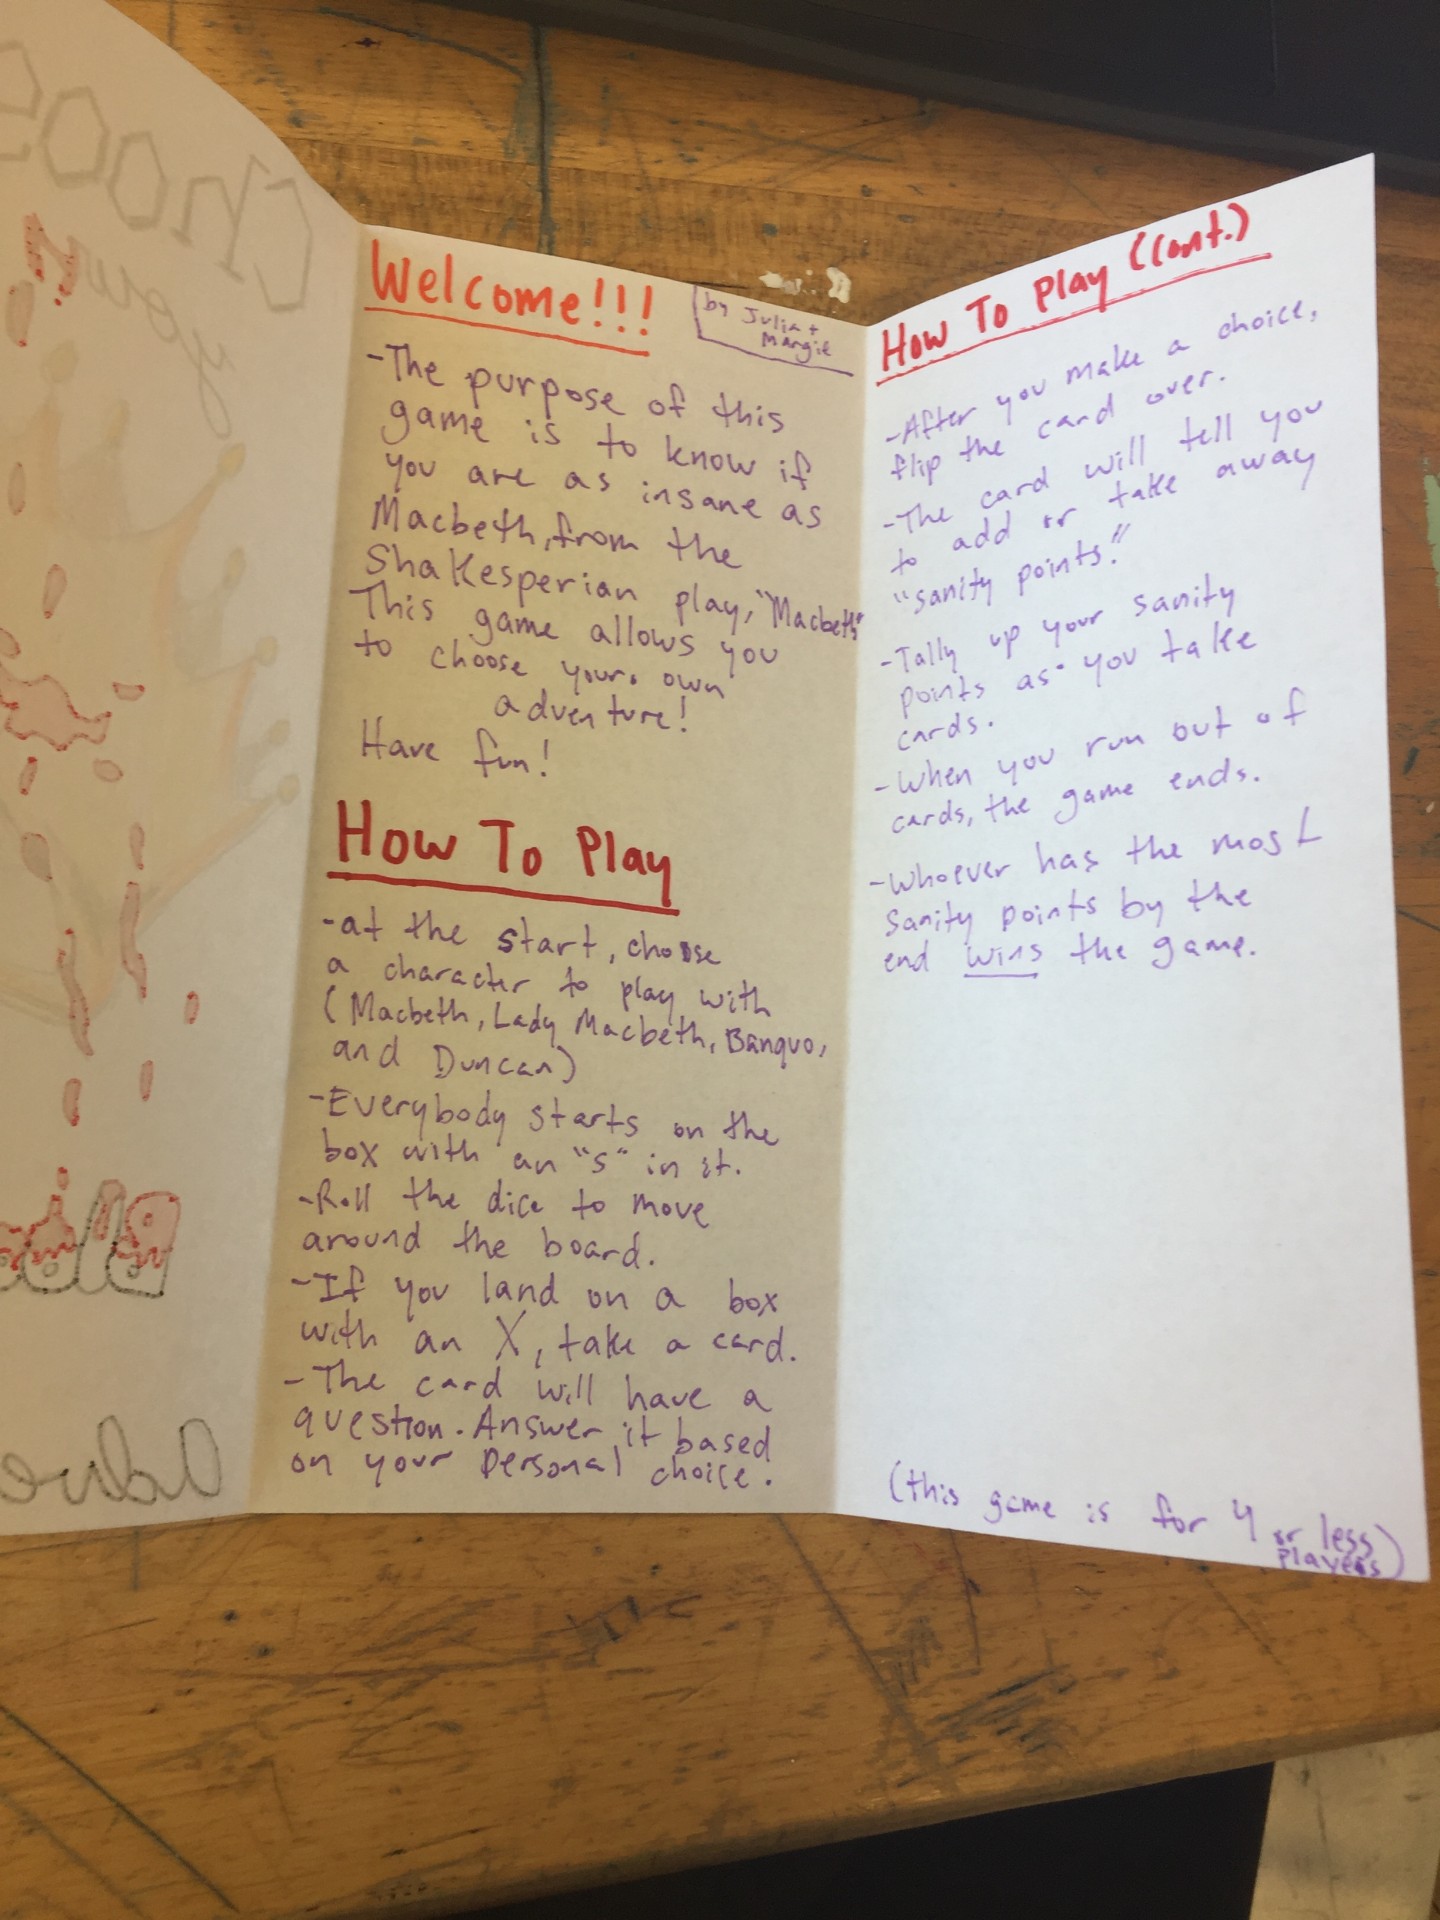 Welcome!!!
by Julia +
Margie
-The purpose of this
game is to know if
you are as insane as
Macbeth, from the
Shakesperian play, "Macbeth"
This game allows you
to choose your own
adventure!
Have fun!
How To Play
-at the start, choose
a character to play with
(Macbeth, Lady Macbeth, Banquo,
and Duncan)
-Everybody starts on the
box with an "S" in it.
-Roll the dice to move
around the board.
-If you land on a box
with an X, take a card.
-The card will have a
question. Answer it based
on your personal choice.
How To Play (Cont.)
-After you make a choice,
flip the card over.
-The card will tell you
to add or take away
"sanity points."
-Tally up your sanity
points as you take
cards.
-When you run out of
cards, the game ends.
-Whoever has the most
sanity points by the
end wins the game.
(this game is for 4 or less
players)